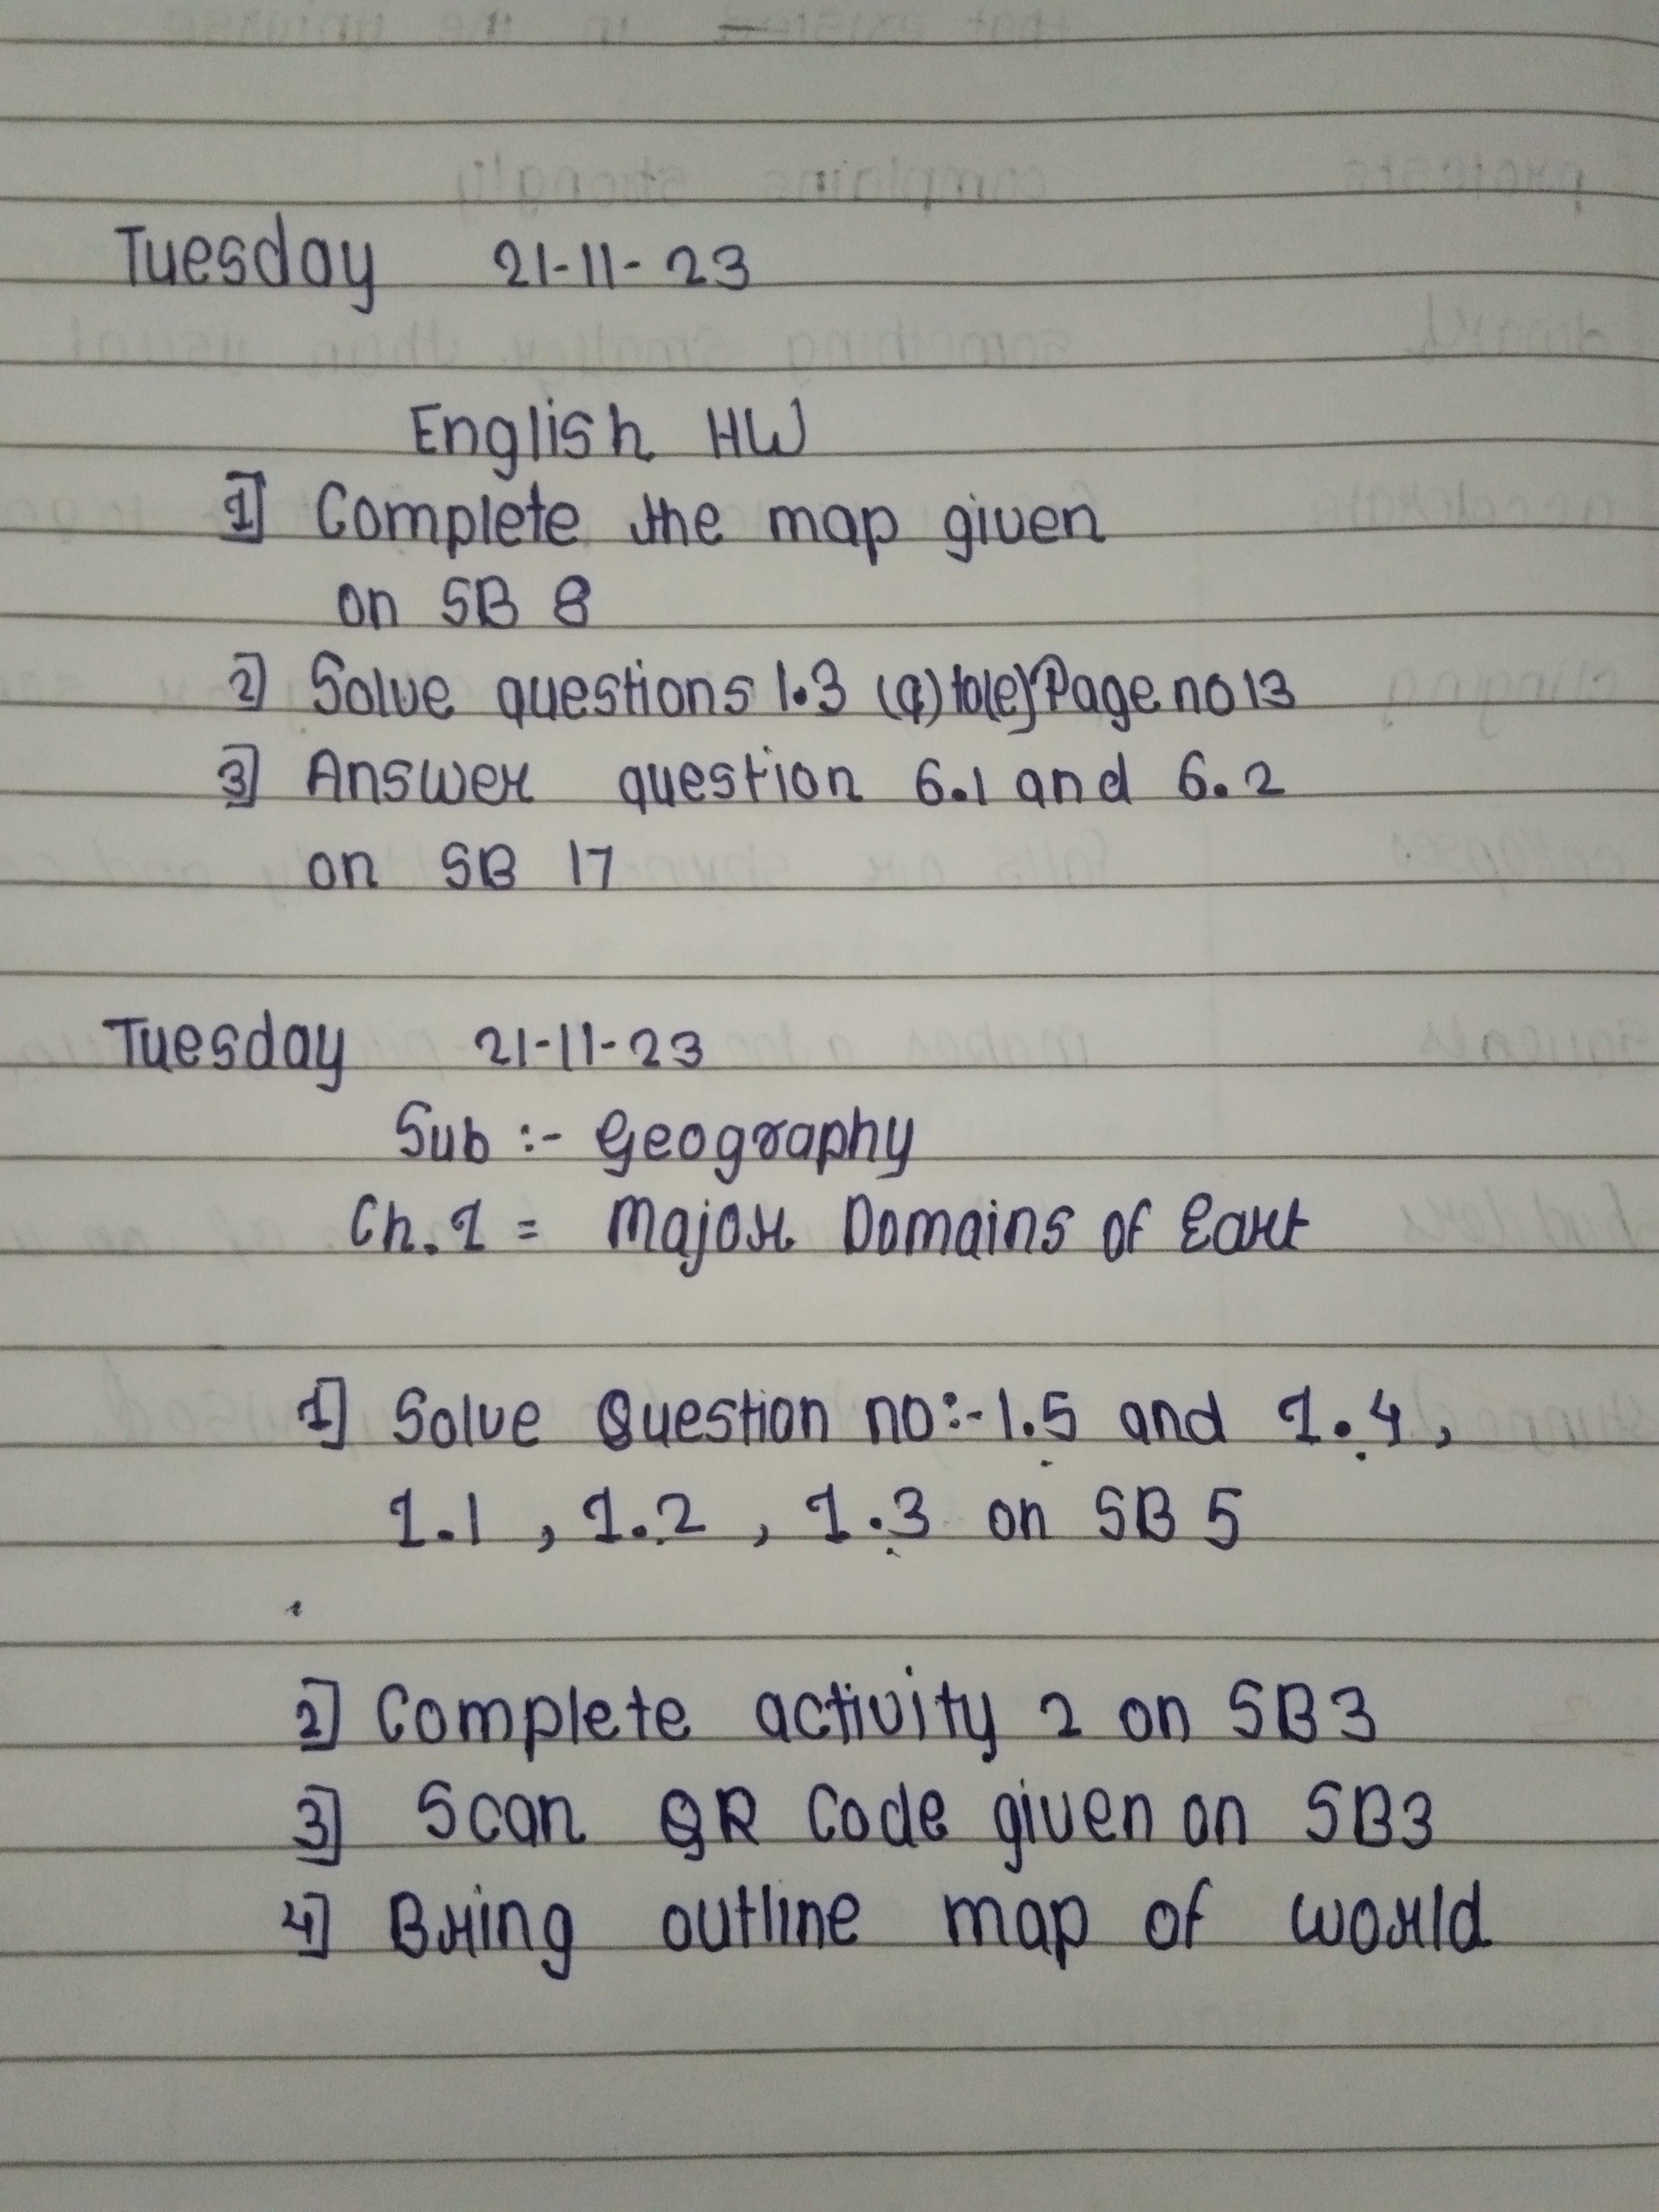 Tuesday 21-11-23
English HW
1] Complete the map given
on SB 8
2] Solve questions 1.3 (a) to(e) Page no 13
3] Answer question 6.1 and 6.2
on SB 17
Tuesday 21-11-23
Sub :- Geography
Ch. 1 = Major Domains of Eart
1] Solve Question no:- 1.5 and 1.4,
1.1 , 1.2 , 1.3 on SB 5
2] Complete activity 2 on SB3
3] Scan QR Code given on SB3
4] Bring outline map of world